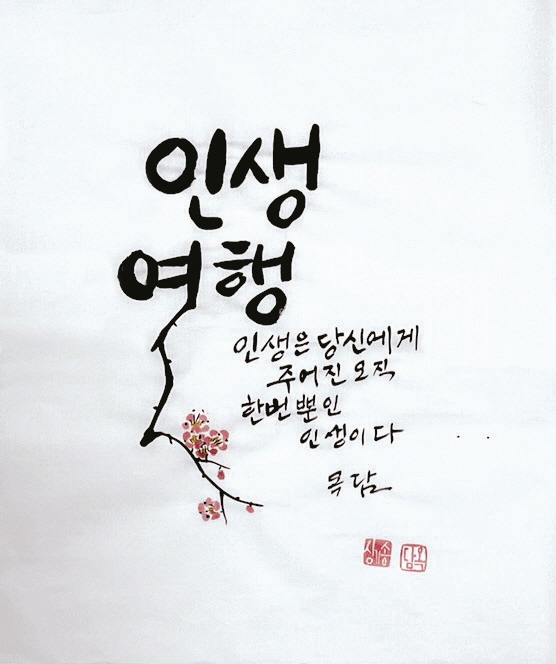 인생
여행
인생은 당신에게
주어진 오직
한번 뿐인
인생이다
목담